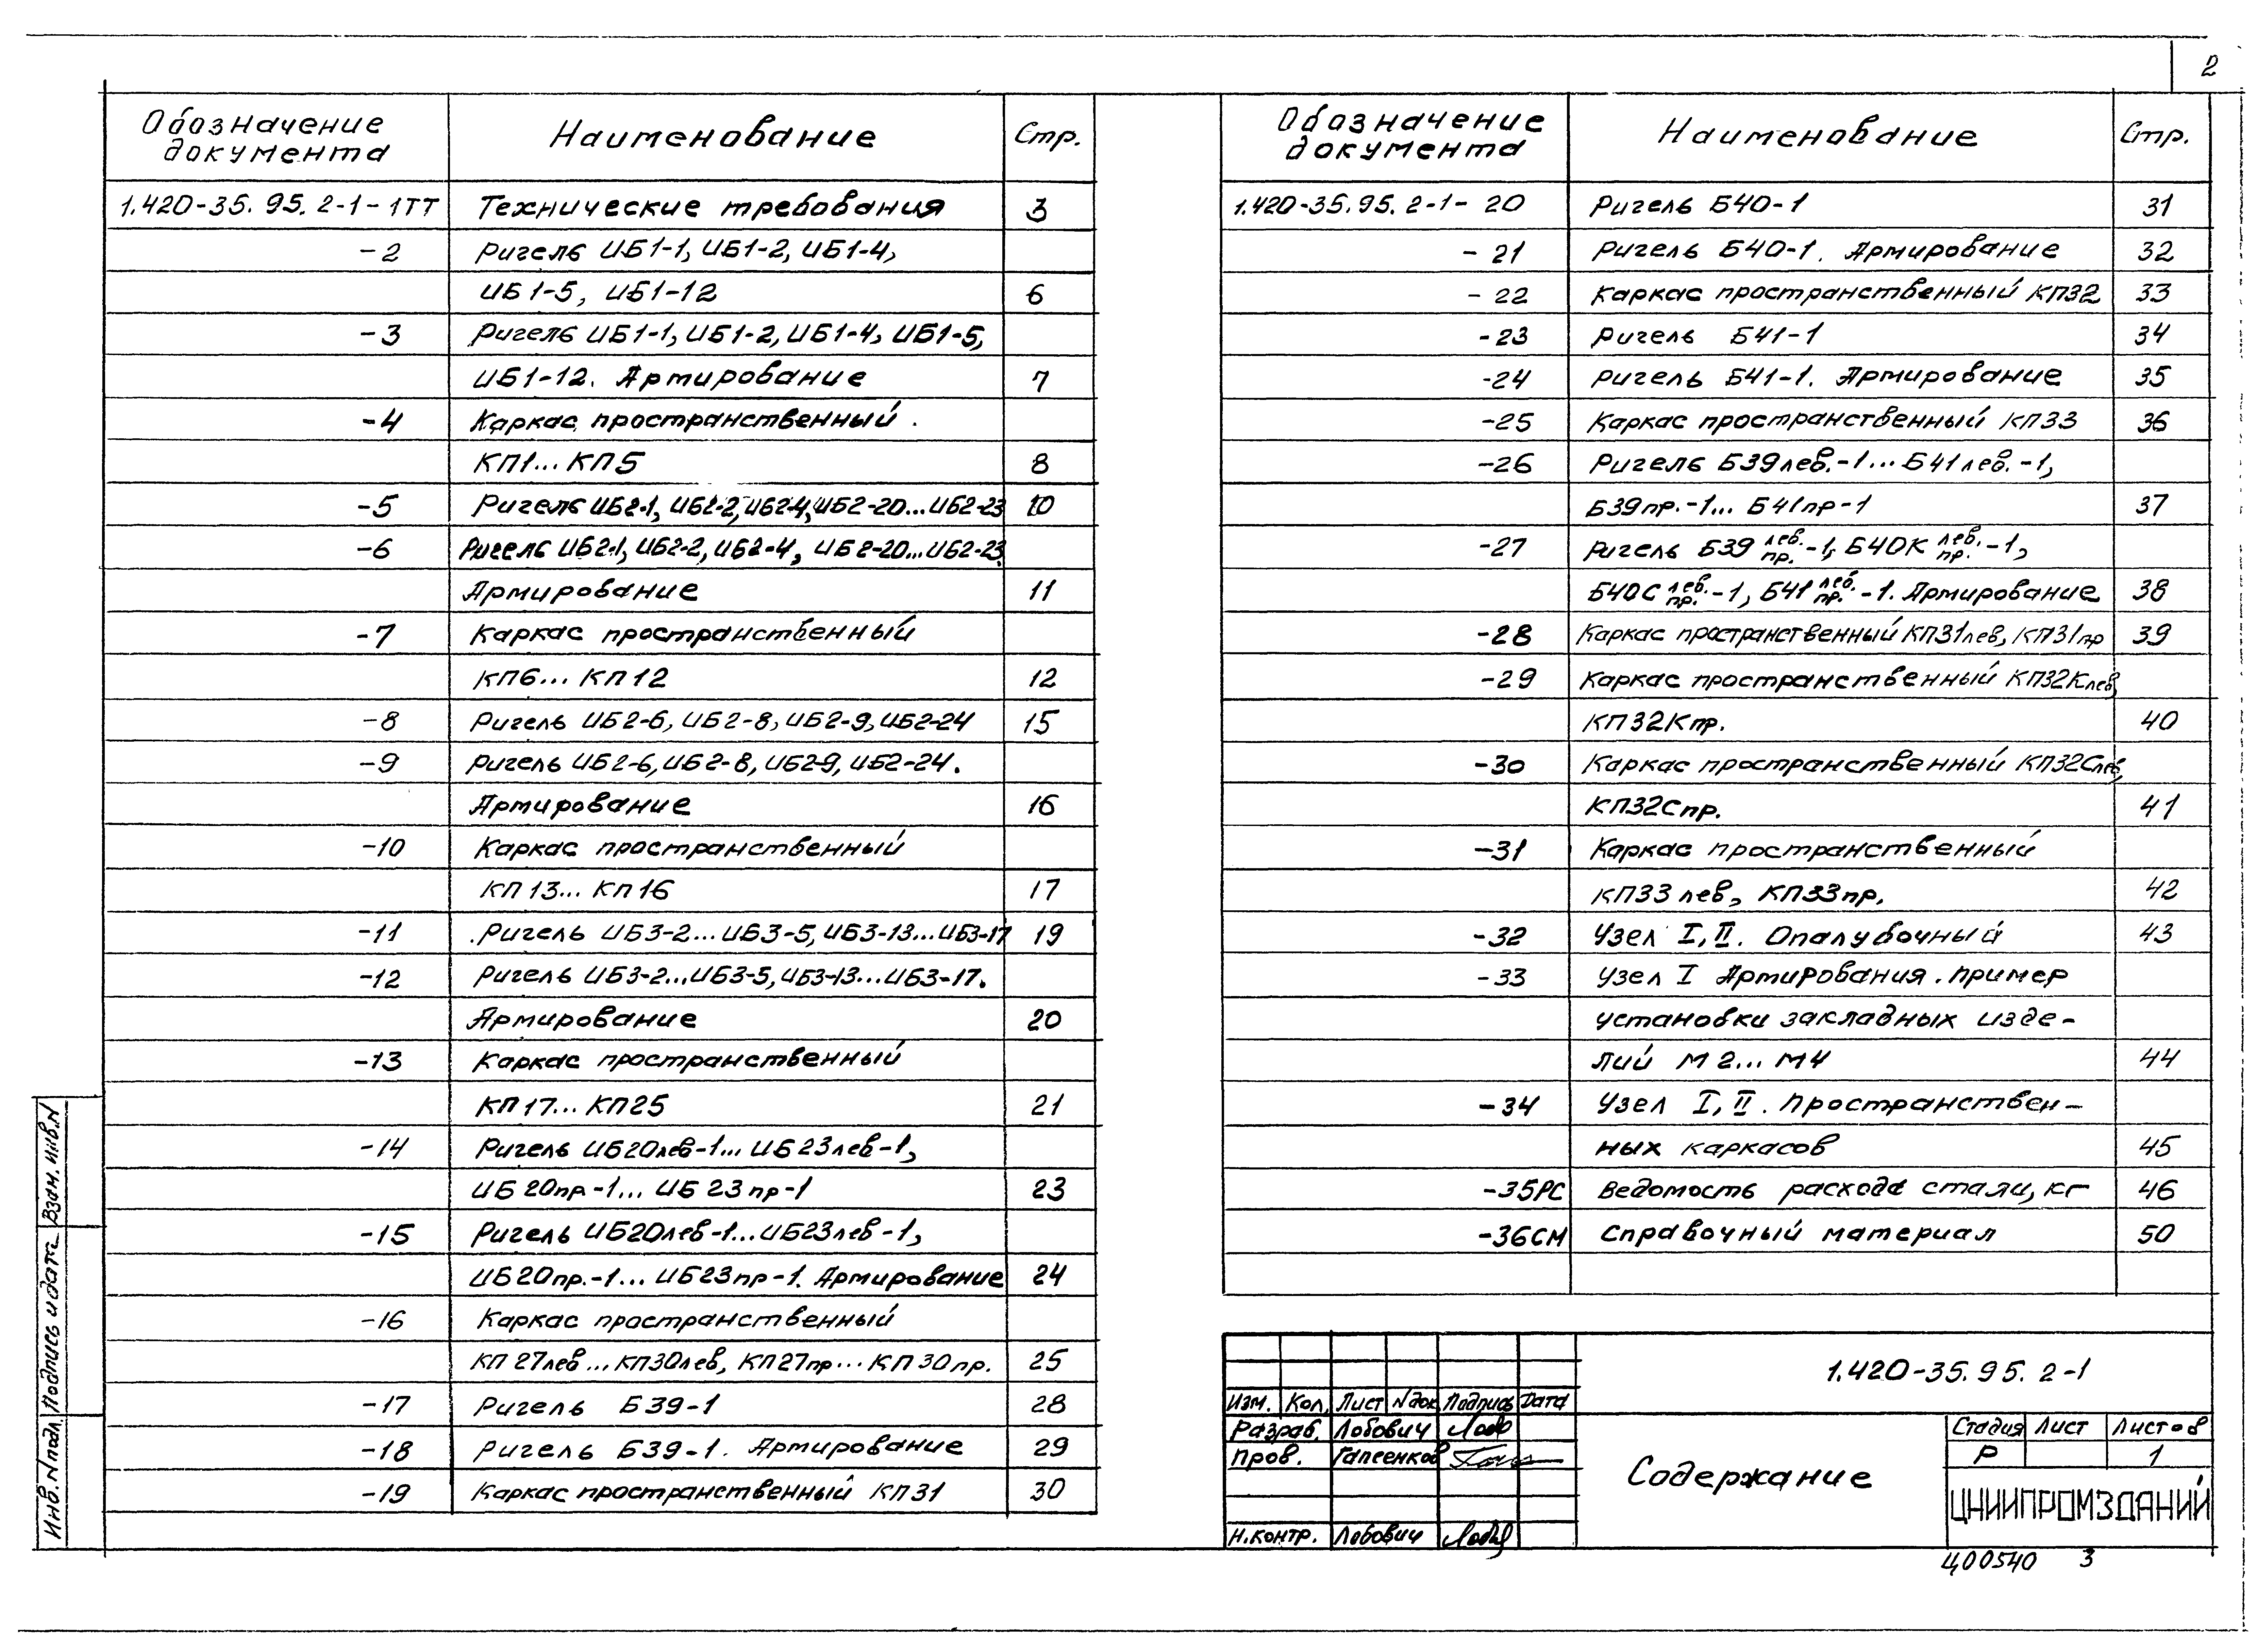 2
Обозначение документа Наименование Стр.
1.420-35.95.2-1-1ТТ Технические требования 3
-2 Ригель ИБ1-1, ИБ1-2, ИБ1-4,
ИБ1-5, ИБ1-12 6
-3 Ригель ИБ1-1, ИБ1-2, ИБ1-4, ИБ1-5,
ИБ1-12. Армирование 7
-4 Каркас пространственный
КП1...КП5 8
-5 Ригель ИБ2-1, ИБ2-2, ИБ2-4, ИБ2-20...ИБ2-23 10
-6 Ригель ИБ2-1, ИБ2-2, ИБ2-4, ИБ2-20...ИБ2-23.
Армирование 11
-7 Каркас пространственный
КП6...КП12 12
-8 Ригель ИБ2-6, ИБ2-8, ИБ2-9, ИБ2-24 15
-9 Ригель ИБ2-6, ИБ2-8, ИБ2-9, ИБ2-24.
Армирование 16
-10 Каркас пространственный
КП13...КП16 17
-11 Ригель ИБ3-2...ИБ3-5, ИБ3-13...ИБ3-17 19
-12 Ригель ИБ3-2...ИБ3-5, ИБ3-13...ИБ3-17.
Армирование 20
-13 Каркас пространственный
КП17...КП25 21
-14 Ригель ИБ20лев-1...ИБ23лев-1,
ИБ20пр-1...ИБ23пр-1 23
-15 Ригель ИБ20лев-1...ИБ23лев-1,
ИБ20пр.-1...ИБ23пр-1. Армирование 24
-16 Каркас пространственный
КП27лев...КП30лев, КП27пр...КП30пр. 25
-17 Ригель Б39-1 28
-18 Ригель Б39-1. Армирование 29
-19 Каркас пространственный КП31 30
Обозначение документа Наименование Стр.
1.420-35.95.2-1-20 Ригель Б40-1 31
-21 Ригель Б40-1. Армирование 32
-22 Каркас пространственный КП32 33
-23 Ригель Б41-1 34
-24 Ригель Б41-1. Армирование 35
-25 Каркас пространственный КП33 36
-26 Ригель Б39лев.-1...Б41лев.-1,
Б39пр.-1...Б41пр-1 37
-27 Ригель Б39 лев. пр.-1, Б40К лев. пр.-1,
Б40С лев. пр.-1, Б41 лев. пр.-1. Армирование 38
-28 Каркас пространственный КП31лев, КП31пр 39
-29 Каркас пространственный КП32Клев,
КП32Кпр. 40
-30 Каркас пространственный КП32Слев,
КП32Спр. 41
-31 Каркас пространственный
КП33лев, КП33пр. 42
-32 Узел I, II. Опалубочный 43
-33 Узел I Армирования. Пример
установки закладных изде-
лий М2...М4 44
-34 Узел I, II. Пространствен-
ных каркасов 45
-35РС Ведомость расхода стали, кг 46
-36СМ Справочный материал 50
1.420-35.95.2-1
Изм. Кол. Лист №док Подпись Дата
Разраб. Лобович
Пров. Гапеенков
Н.контр. Лобович
Содержание
Стадия Лист Листов
Р 1
ЦНИИПРОМЗДАНИЙ
Ц00540 3
Инв. № подл. Подпись и дата Взам. инв. №